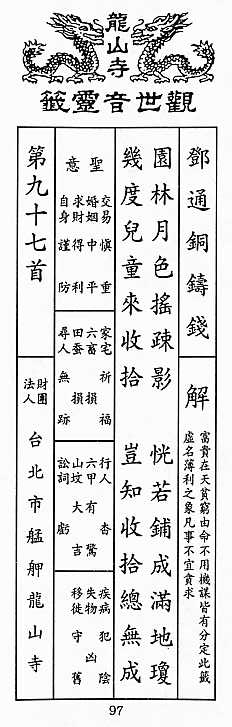 龍山寺
觀世音靈籤
鄧通銅鑄錢
解
富貴在天貧窮由命不用機謀皆有分定此籤
虛名薄利之象凡事不宜貪求
園林月色搖疎影 恍若鋪成滿地瓊
幾度兒童來收拾 豈知收拾總無成
聖意
交易慎重
婚姻中平
求財得利
自身謹防
家宅祈福
六畜損
田蚕損
尋人無跡
行人杳
六甲有驚
山坟大吉
訟詞虧
疾病犯陰
失物凶
移徙守舊
第九十七首
財團法人
台北市艋舺龍山寺
97